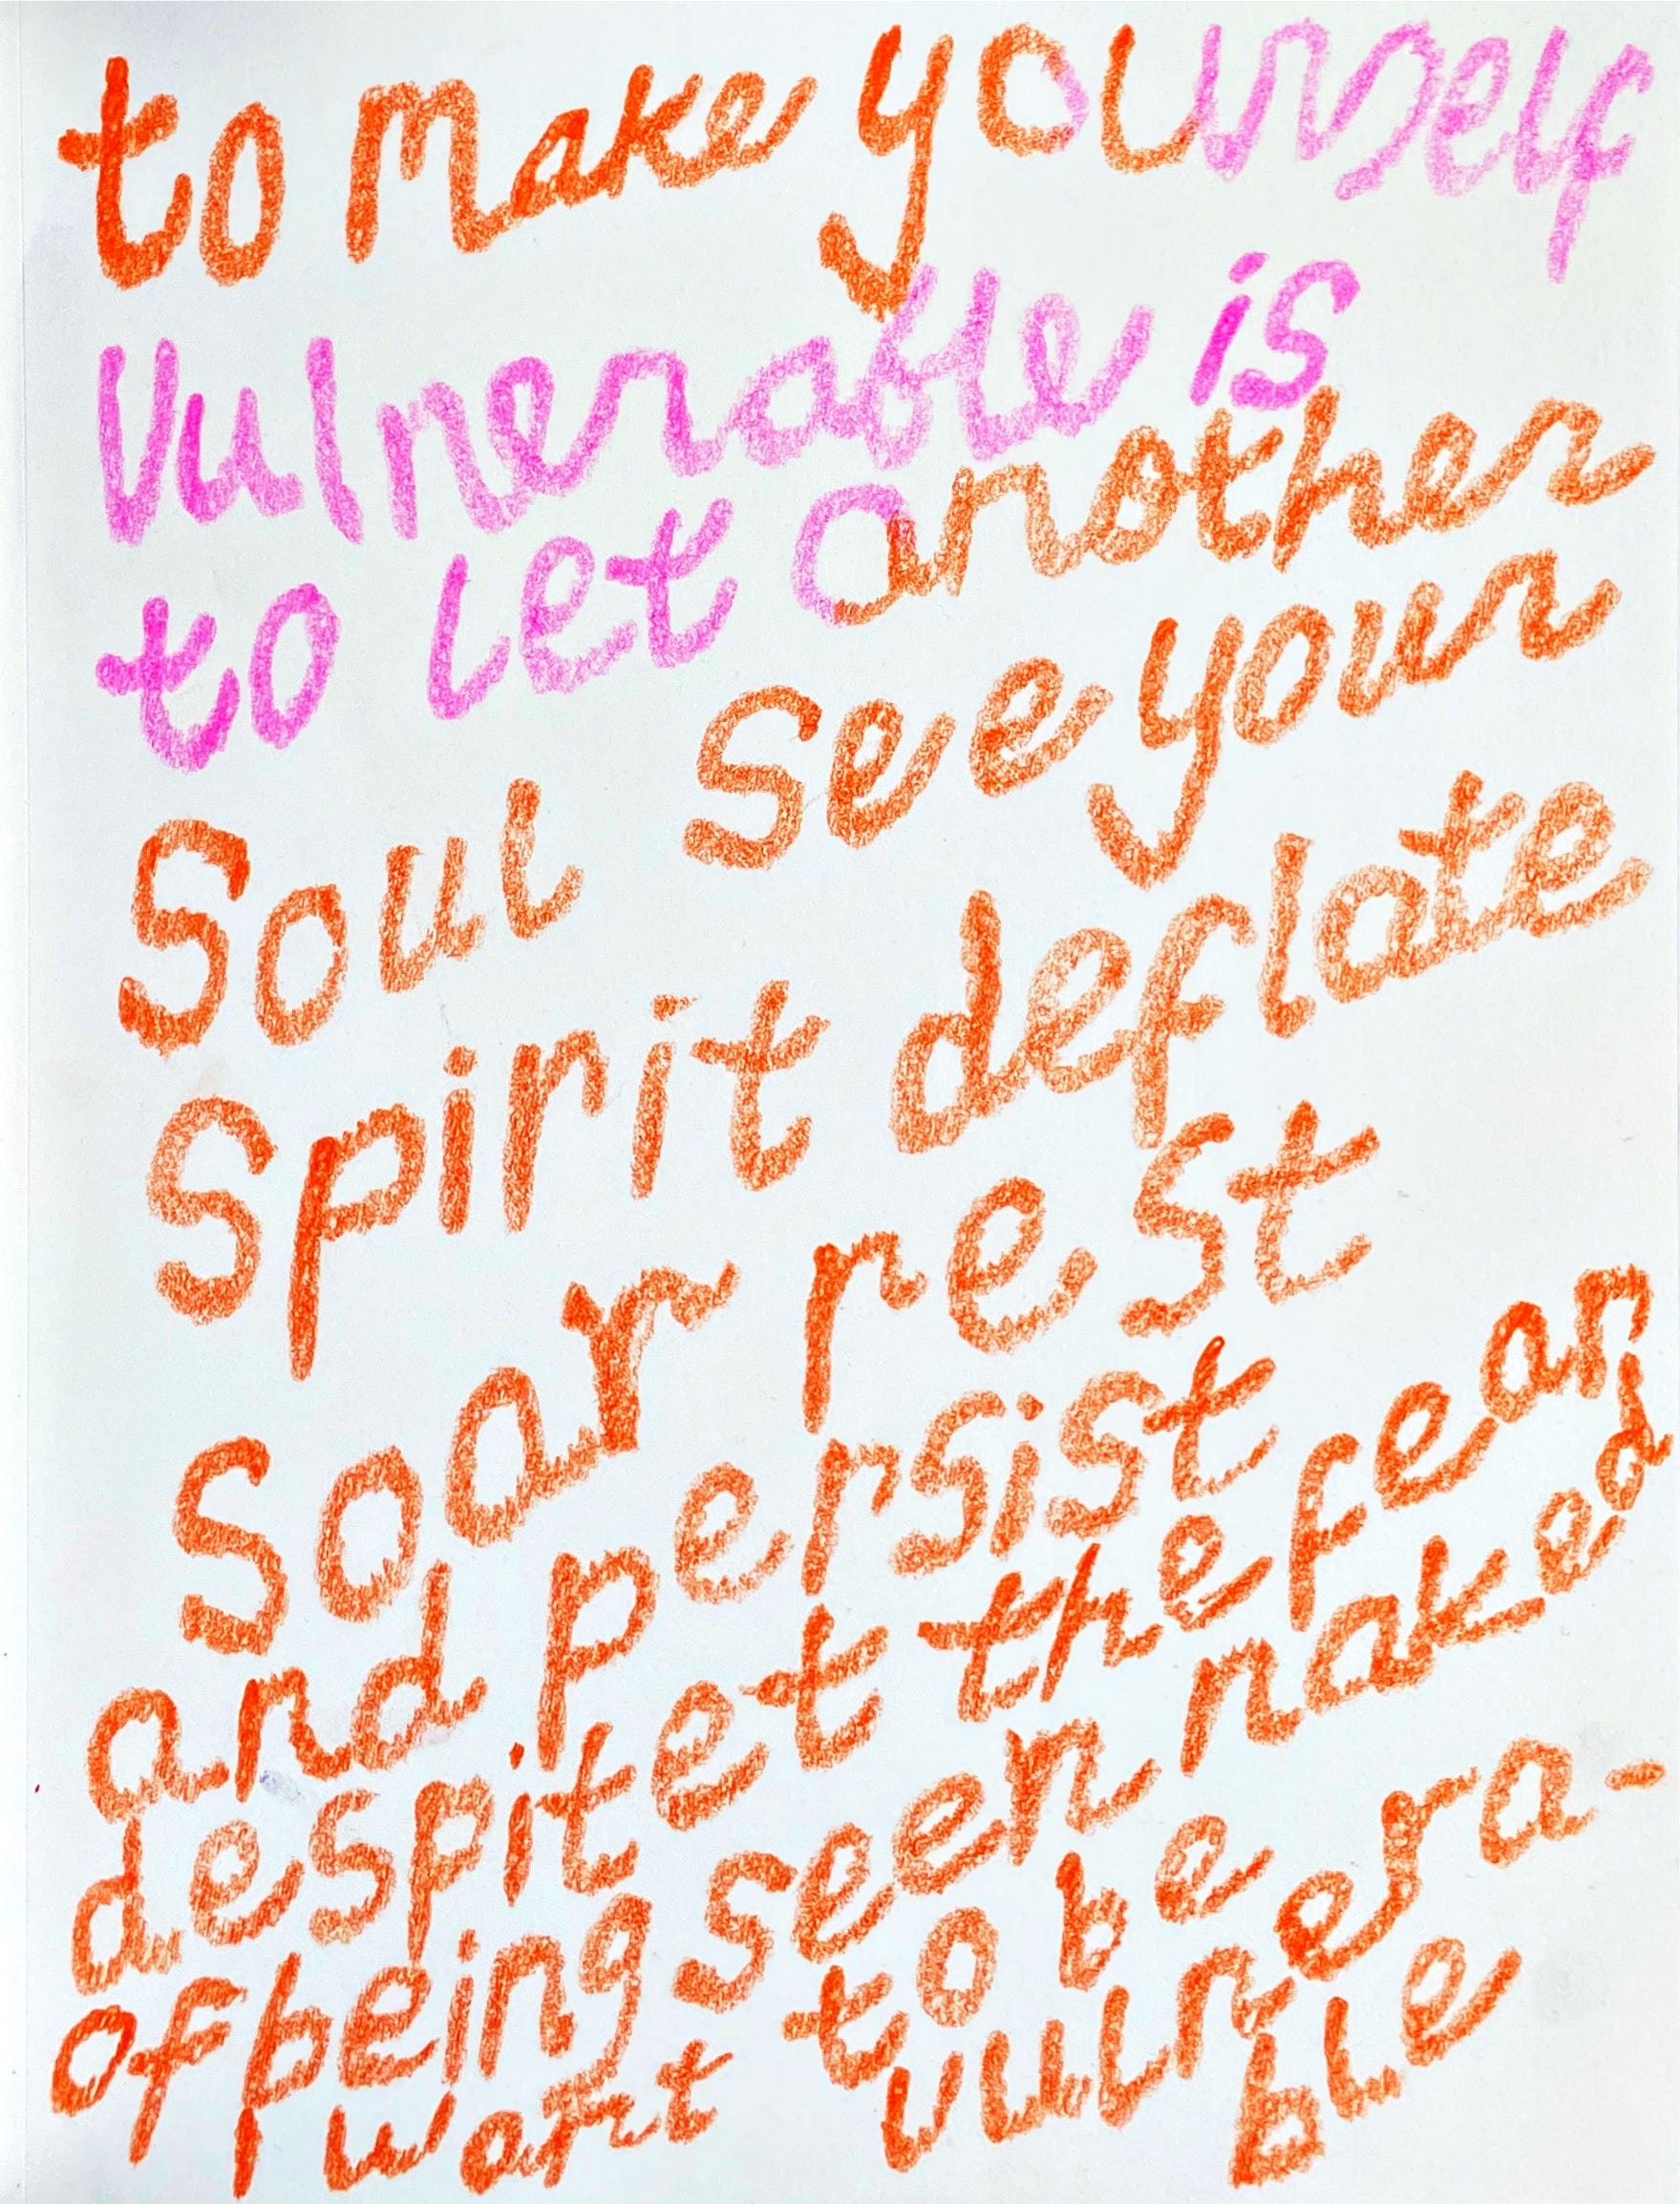 to make yourself
Vulnerable is
to let another
see your
Soul
Spirit deflate
Soar rest
and persist
despite the fear
of being seen naked
I want to be vulnera-
ble